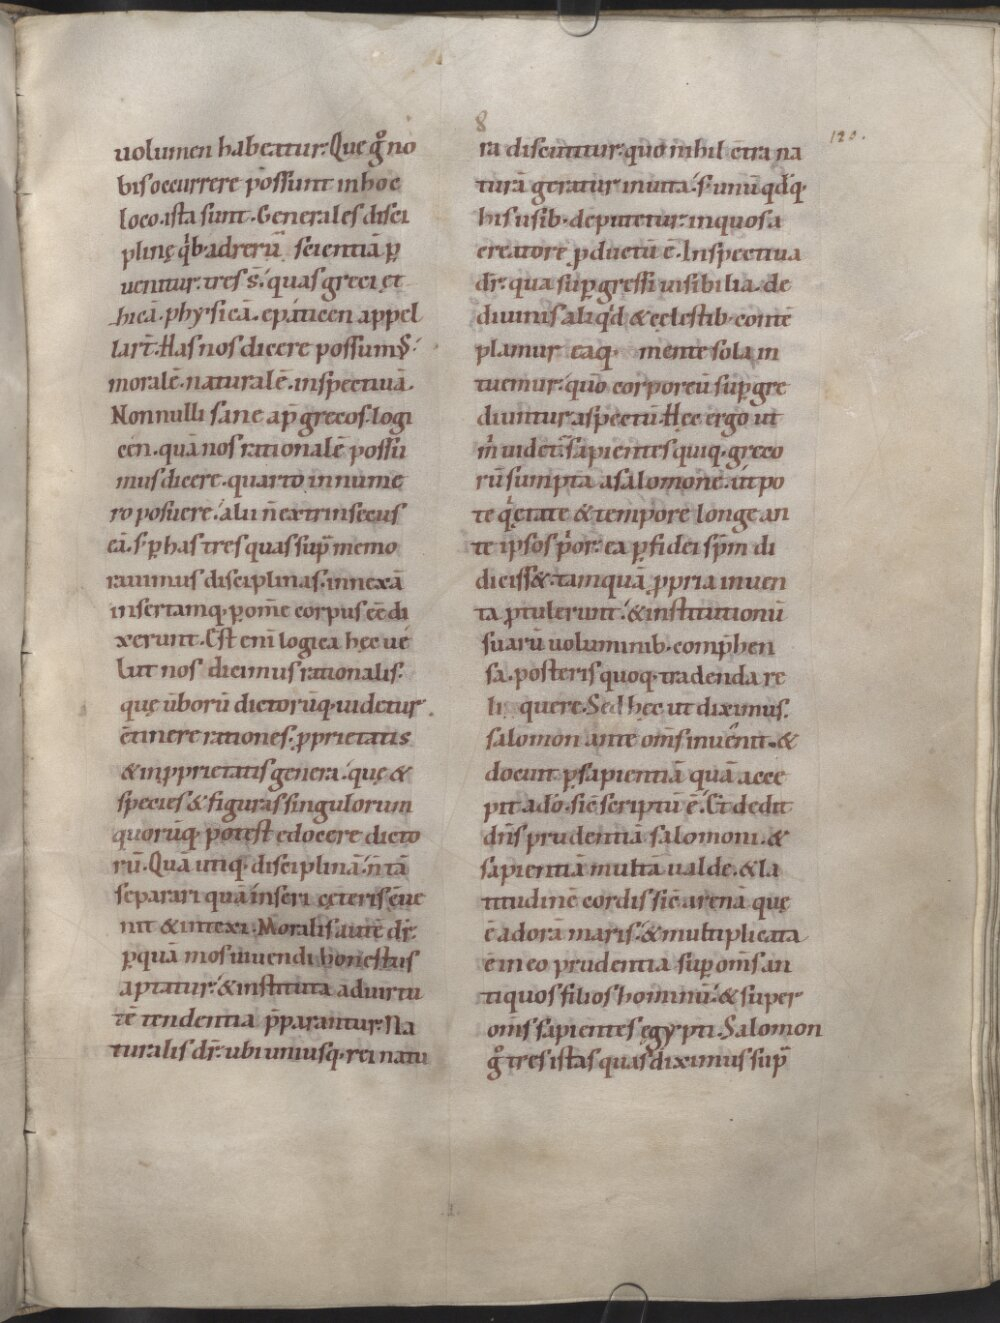 8
120.
uolumen habeatur. Que gͦ no
bis occurrere possunt in hoc
loco. ista sunt. Generales disci
plinę qͥb. ad rerū scientiā ꝑ
uenitur. tres s̄. quas greci et
hicā. physicā. epāticen appel
lart̄. Has nos dicere possumꝰ.
moralē. naturalē. inspectiuā.
Nonnulli sane ap̄ grecos. logi
cen. quā nos rationalē possu
mus dicere. quarto in nume
ro posuere. alii n̄ extrinsecus
eā. s. ꝑ has tres quas sup̄ memo
rauimus disciplinas. innexā
insertamq. ꝑ om̄e corpus eē di
xerunt. Est eni logica hęc ue
lut nos dicimus rationalis.
quę ūborū dictorūq. uidetur
c̄tinere rationes. ꝓprietatis
& inꝓprietatis genera. quę &
species & figuras singulorum
quorūq. potest edocere dicto
rū. Quā utiq. disciplinā. n̄ tā
separari quā inseri cęteris c̄ue
nit & intexi. Moralis autē dr̄.
ꝑ quā mos uiuendi honestus
aptatur. & instituta ad uirtu
tē tendentia p̄parantur. Na
turalis dr̄. ubi uniusq. rei natu
ra discutitur. quo nihil c̄tra na
turā geratur in uita. s. unū qdq.
his usib. deputetur. in quos a
creatore ꝓductū ē. Inspectiua
dr̄. qua suꝑgressi uisibilia. de
diuinis aliqͥd & cęlestib. conte
plamur eaq. mente sola in
tuemur. quō corporeū suꝑgre
diuntur aspectū. Hęc ergo ut
mͥ uidet̄. sapientes quiq. greco
rū sumpta a salomone. ut po
te qͥ ętate & tempore longe an
te ipsos pͥor. ea ꝑ fi dei sp̄m di
diciss&. tamquā ꝓpria inuen
ta ꝓtulerunt. & institutionū
suarū uoluminib. comp̄hen
sa. posteris quoq. tradenda re
li quere. Sed hęc ut diximus.
salomon ante om̄s inuenit. &
docuit ꝑ sapientiā quā acce
pit a dō. sic̄ scriptū ē. Et dedit
dn̄s prudentiā salomoni. &
sapientiā multā ualde. & la
titudinē cordis sic̄ arenā quę
ē ad orā maris. & multiplicata
ē in eo prudentia suꝑ om̄s an
tiquos filios hominū. & super
om̄s sapientes ęgypti. Salomon
gͦ tres istas quas diximus sup̄